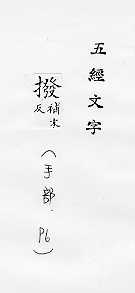 五經文字
撥補末反
（手部．P6）